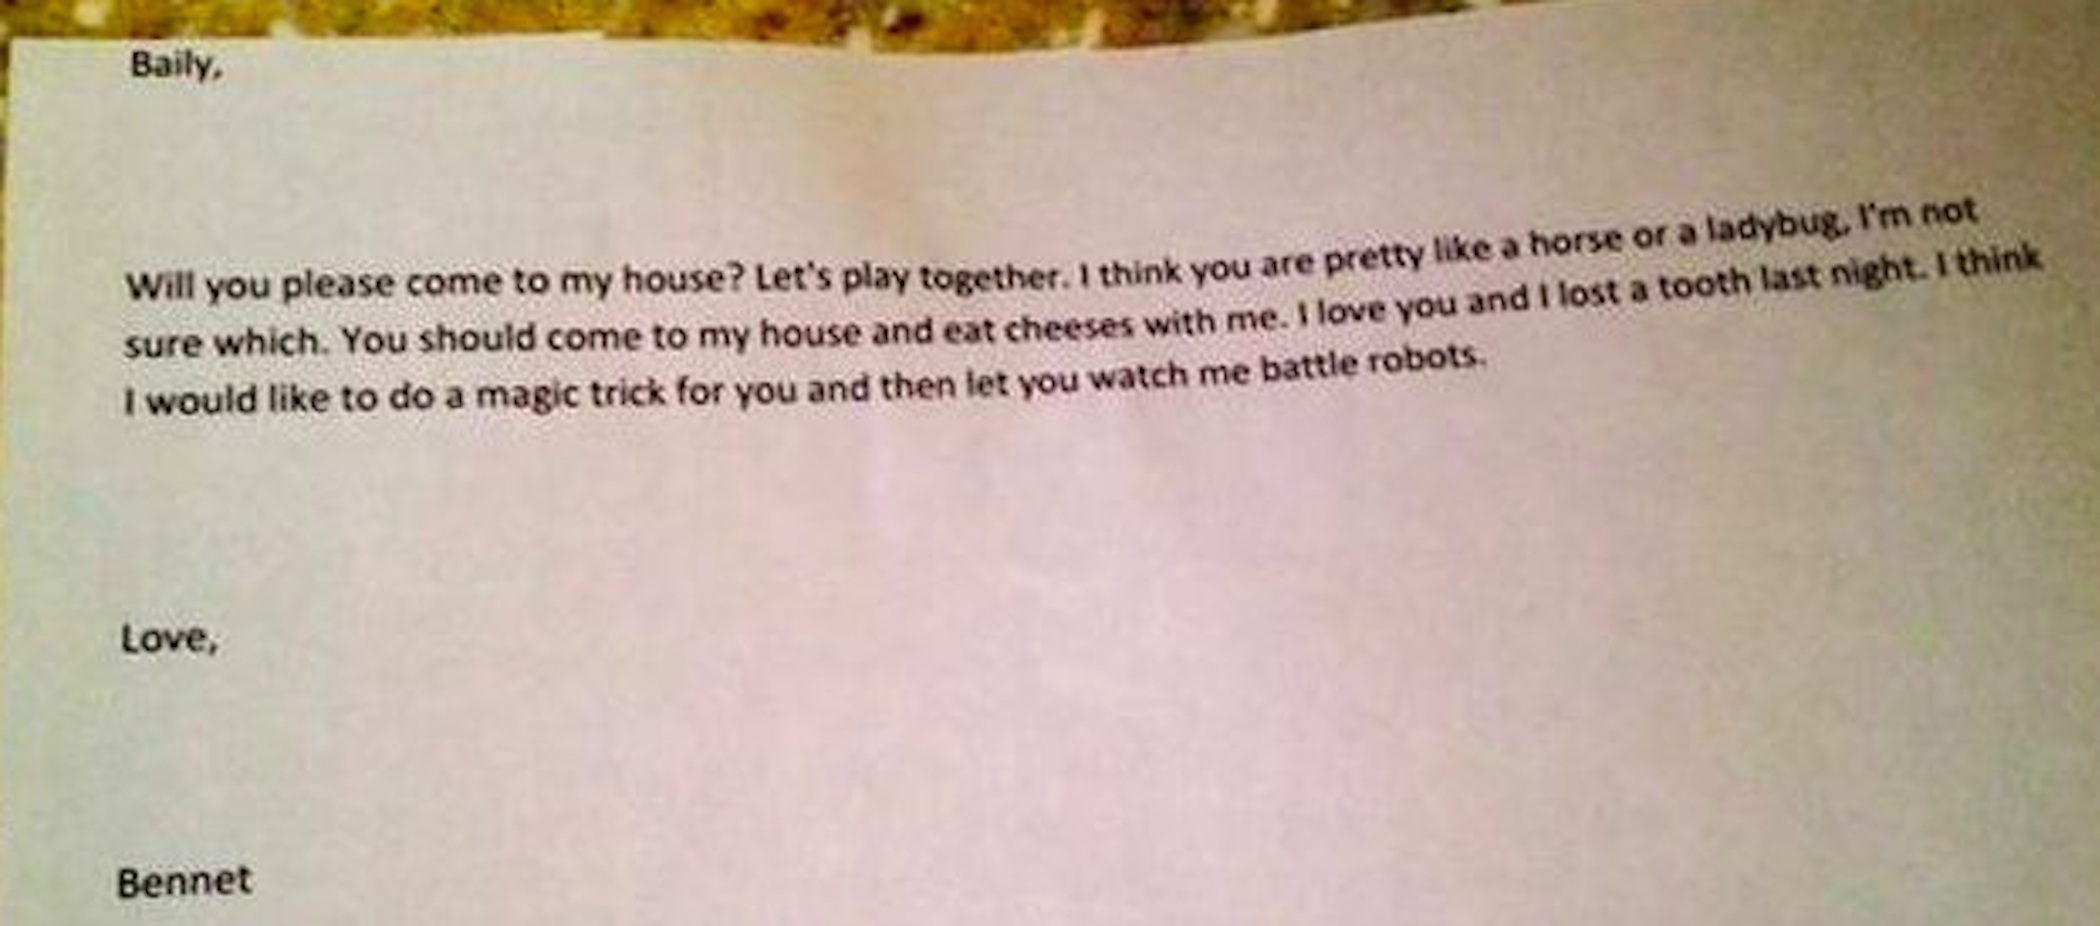 Baily,
Will you please come to my house? Let's play together. I think you are pretty like a horse or a ladybug, I'm not
sure which. You should come to my house and eat cheeses with me. I love you and I lost a tooth last night. I think
I would like to do a magic trick for you and then let you watch me battle robots.
Love,
Bennet